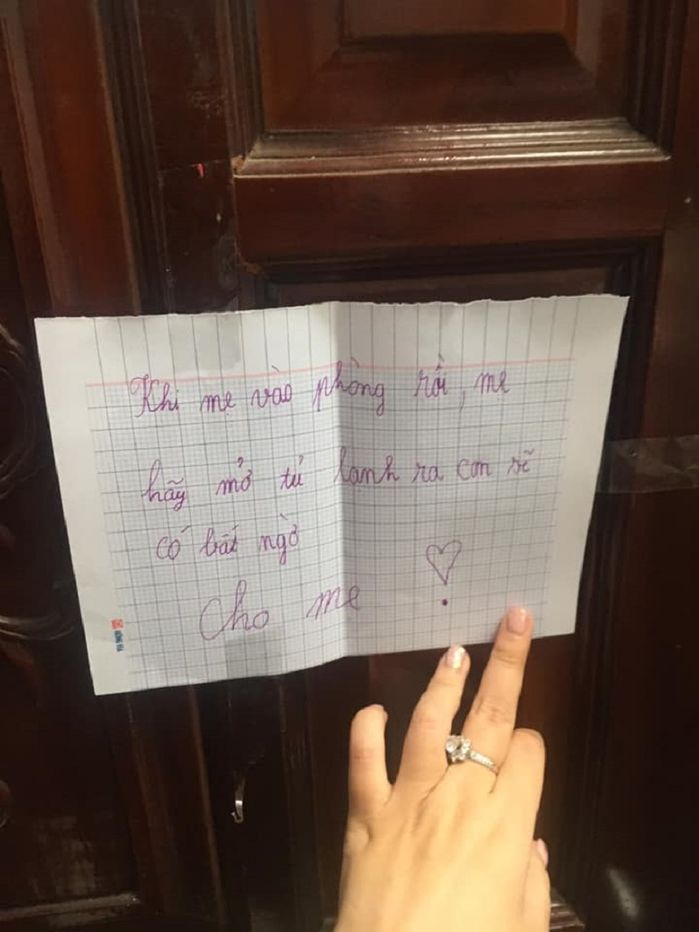 Khi mẹ vào phòng rồi, mẹ
hãy mở tủ lạnh ra con sẽ
có bất ngờ
cho mẹ